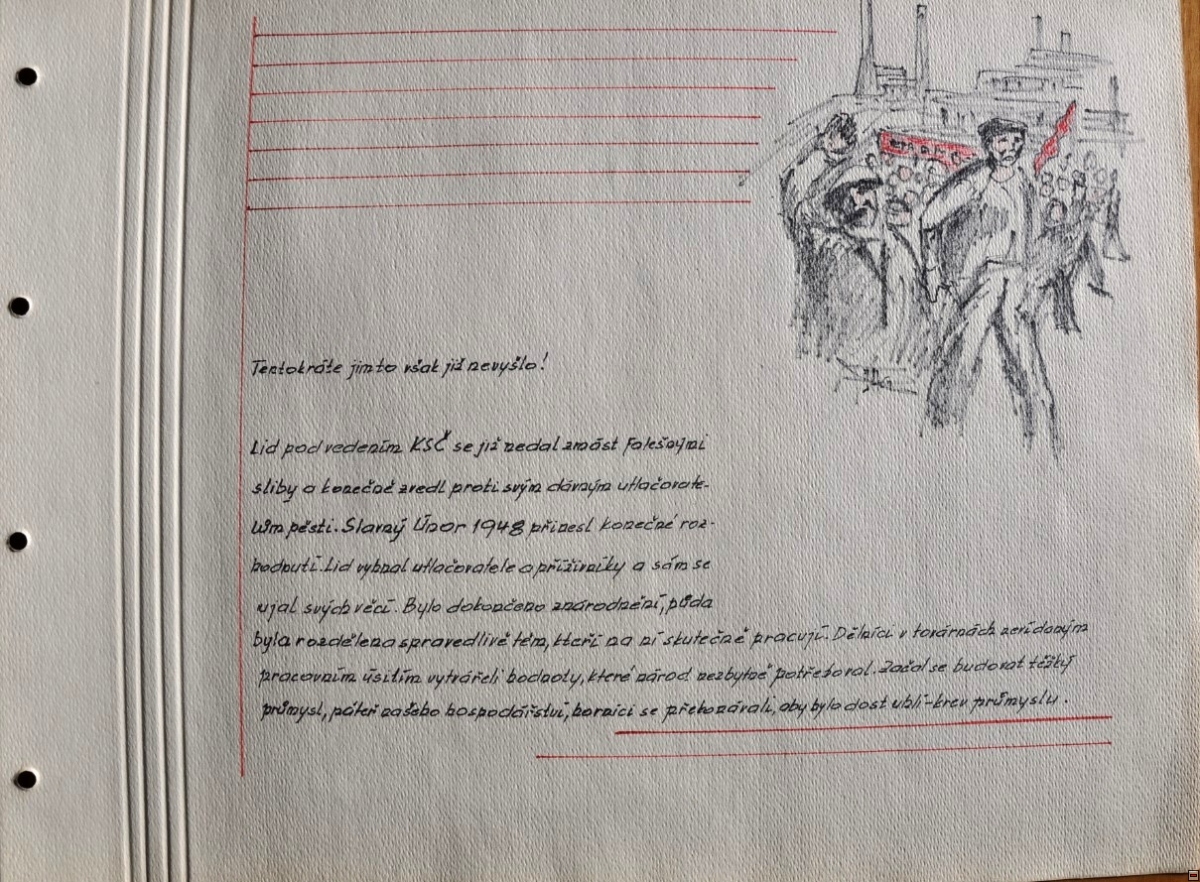 Tentokráte jim to však již nevyšlo!
Lid pod vedením KSČ se již nedal zmást falešnými
sliby a konečně zvedl proti svým dávným utlačovate-
lům pěsti. Slavný Únor 1948 přinesl konečné roz-
hodnutí. Lid vyhnal utlačovatele a příživníky a sám se
ujal svých věcí. Bylo dokončeno znárodnění, půda
byla rozdělena spravedlivě těm, kteří na ní skutečně pracují. Dělníci v továrnách nevídaným
pracovním úsilím vytvářeli hodnoty, které národ nezbytně potřeboval. Začal se budovat těžký
průmysl, páteř našeho hospodářství, horníci se překonávali, aby bylo dost uhlí-krev průmyslu.